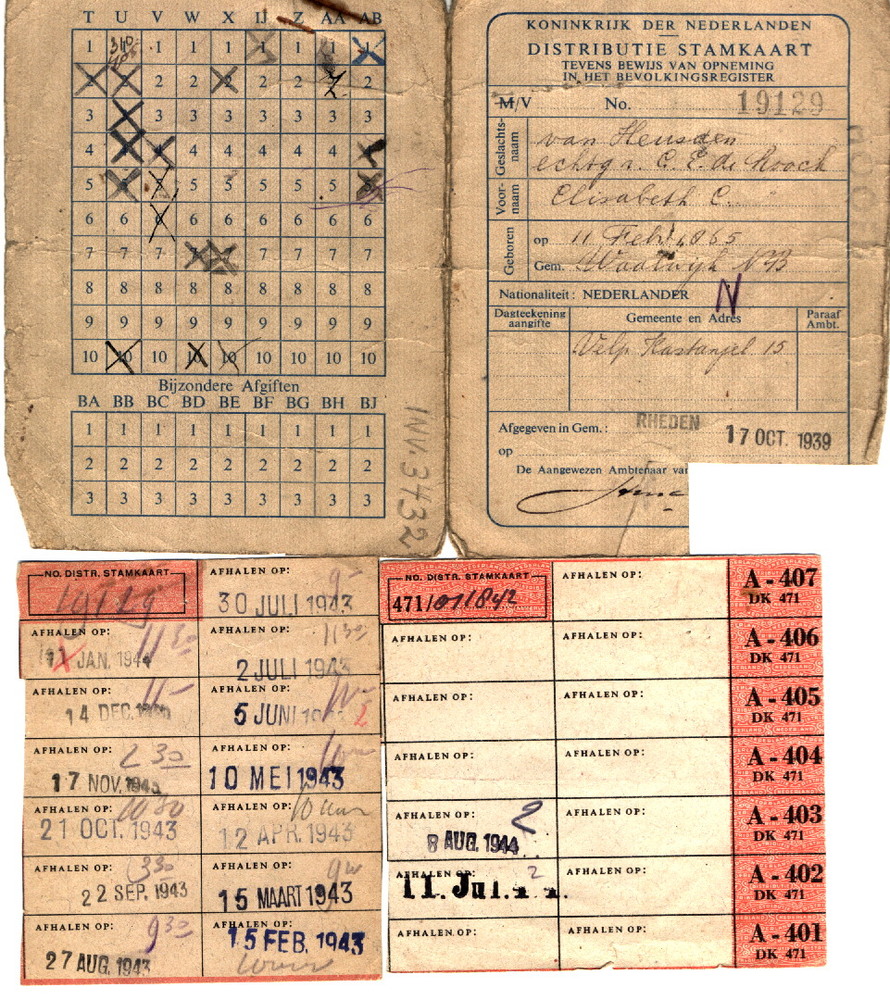 T U V W X IJ Z AA AB
1 1 1 1 1 1 1 1
2 2 2 2 2 2 2 2
3 3 3 3 3 3 3 3 3
4 4 4 4 4 4 4 4 4
5 5 5 5 5 5 5 5 5
6 6 6 6 6 6 6 6 6
7 7 7 7 7 7 7 7 7
8 8 8 8 8 8 8 8 8
9 9 9 9 9 9 9 9 9
10 10 10 10 10 10 10 10 10
Bijzondere Afgiften
BA BB BC BD BE BF BG BH BJ
1 1 1 1 1 1 1 1 1
2 2 2 2 2 2 2 2 2
3 3 3 3 3 3 3 3 3
INV. 3432
KONINKRIJK DER NEDERLANDEN
DISTRIBUTIE STAMKAART
TEVENS BEWIJS VAN OPNEMING
IN HET BEVOLKINGSREGISTER
M/V No. 19129
Geslachts-
naam
van Heusden
echtg v. C. E. de Rooch
Voor-
naam
Elisabeth C.
Geboren
op 11 Feb 1865
Gem. Waalwijk NB
Nationaliteit: NEDERLANDER N
Dagteekening
aangifte
Gemeente en Adres
Paraaf
Ambt.
Velp Kastanjel 15
Afgegeven in Gem.: RHEDEN
op 17 OCT. 1939
De Aangewezen Ambtenaar van
NO. DISTR. STAMKAART
19129
AFHALEN OP:
30 JULI 1943
AFHALEN OP:
JAN. 1944
AFHALEN OP:
2 JULI 1943
AFHALEN OP:
14 DEC.
AFHALEN OP:
5 JUNI
AFHALEN OP:
2 30
17 NOV. 1943
AFHALEN OP:
10 MEI 1943
AFHALEN OP:
21 OCT. 1943
AFHALEN OP:
10 uur
12 APR. 1943
AFHALEN OP:
3 30
22 SEP. 1943
AFHALEN OP:
15 MAART 1943
AFHALEN OP:
9 30
27 AUG. 1943
AFHALEN OP:
15 FEB. 1943
NO. DISTR. STAMKAART
471/011842
AFHALEN OP:
A - 407
DK 471
AFHALEN OP:
AFHALEN OP:
A - 406
DK 471
AFHALEN OP:
AFHALEN OP:
A - 405
DK 471
AFHALEN OP:
AFHALEN OP:
A - 404
DK 471
AFHALEN OP:
2
8 AUG. 1944
AFHALEN OP:
A - 403
DK 471
AFHALEN OP:
2
11. Jul.
AFHALEN OP:
A - 402
DK 471
AFHALEN OP:
AFHALEN OP:
A - 401
DK 471